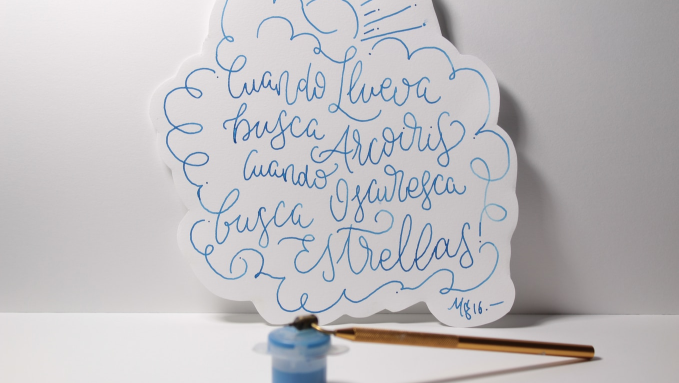 Cuando Llueva
busca Arcoiris
Cuando Oscuresca
busca
Estrellas!